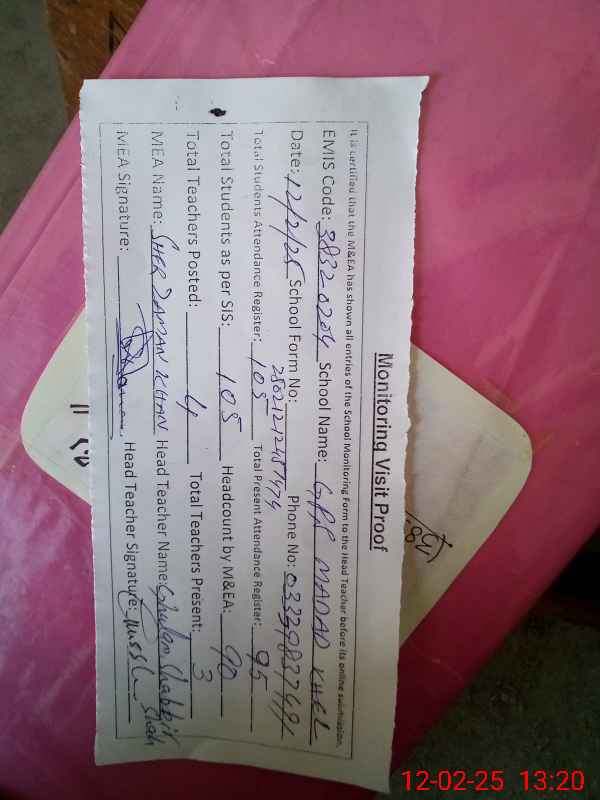 Monitoring Visit Proof
It is certified that the M&EA has shown all entries of the School Monitoring Form to the Head Teacher before its online submission.
EMIS Code: 38320204 School Name: GPS MADAD KHEL
Date: 12/2/25 School Form No: 28021212487474 Phone No:
Total Students Attendance Register: 105 Total Present Attendance Register: 95
Total Students as per SIS: 105 Headcount by M&EA: 90
Total Teachers Posted: 4 Total Teachers Present: 3
MEA Name: SHER ZAMAN KHAN Head Teacher Name: Ghulam Shabbir Shah
MEA Signature: Head Teacher Signature:
12-02-25 13:20